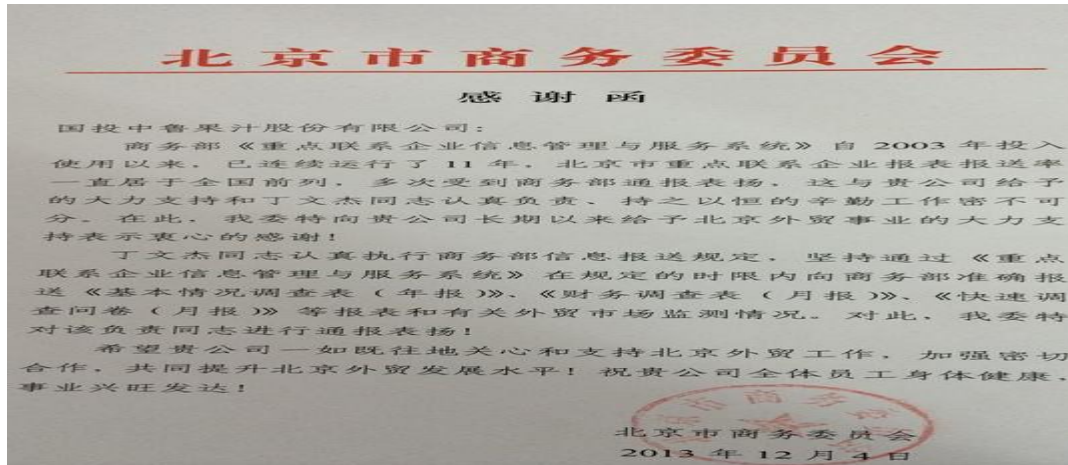 北京市商务委员会
感谢函
国投中鲁果汁股份有限公司：
商务部《重点联系企业信息管理与服务系统》自 2003 年投入
使用以来，已连续运行了 11 年，北京市重点联系企业报表报送率
一直居于全国前列，多次受到商务部通报表扬，这与贵公司给予
的大力支持和丁文杰同志认真负责、持之以恒的辛勤工作密不可
分。在此，我委特向贵公司长期以来给予北京外贸事业的大力支
持表示衷心的感谢！
丁文杰同志认真执行商务部信息报送规定，坚持通过《重点
联系企业信息管理与服务系统》在规定的时限内向商务部准确报
送《基本情况调查表（年报）》、《财务调查表（月报）》、《快速调
查问卷（月报）》等报表和有关外贸市场监测情况。对此，我委特
对该负责同志进行通报表扬！
希望贵公司一如既往地关心和支持北京外贸工作，加强密切
合作，共同提升北京外贸发展水平！祝贵公司全体员工身体健康，
事业兴旺发达！
北京市商务委员会
2013 年 12 月 4 日